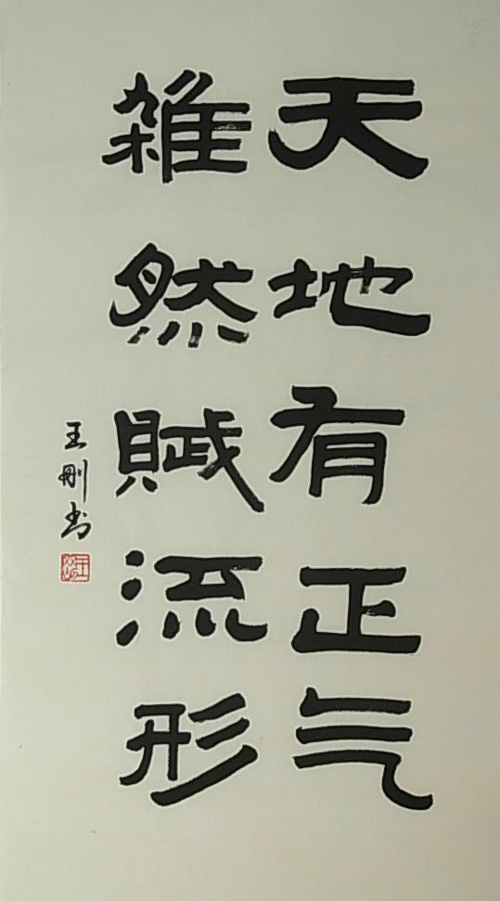 天地有正气
雜然賦流形
王刚书